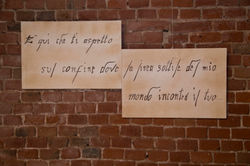 E qui che ti aspetto
sul confine dove
la linea sottile del mio
mondo incontra il tuo